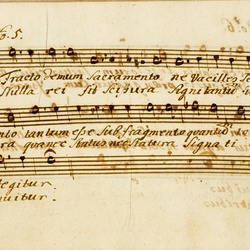 5.
Fracto demum Sacramento ne Vacilles
Nulla rei fit scisura Signi tantum
nto tantum esse sub fragmento quantũ
ra qua nec status nec statura Signati
egitur
nuitur.